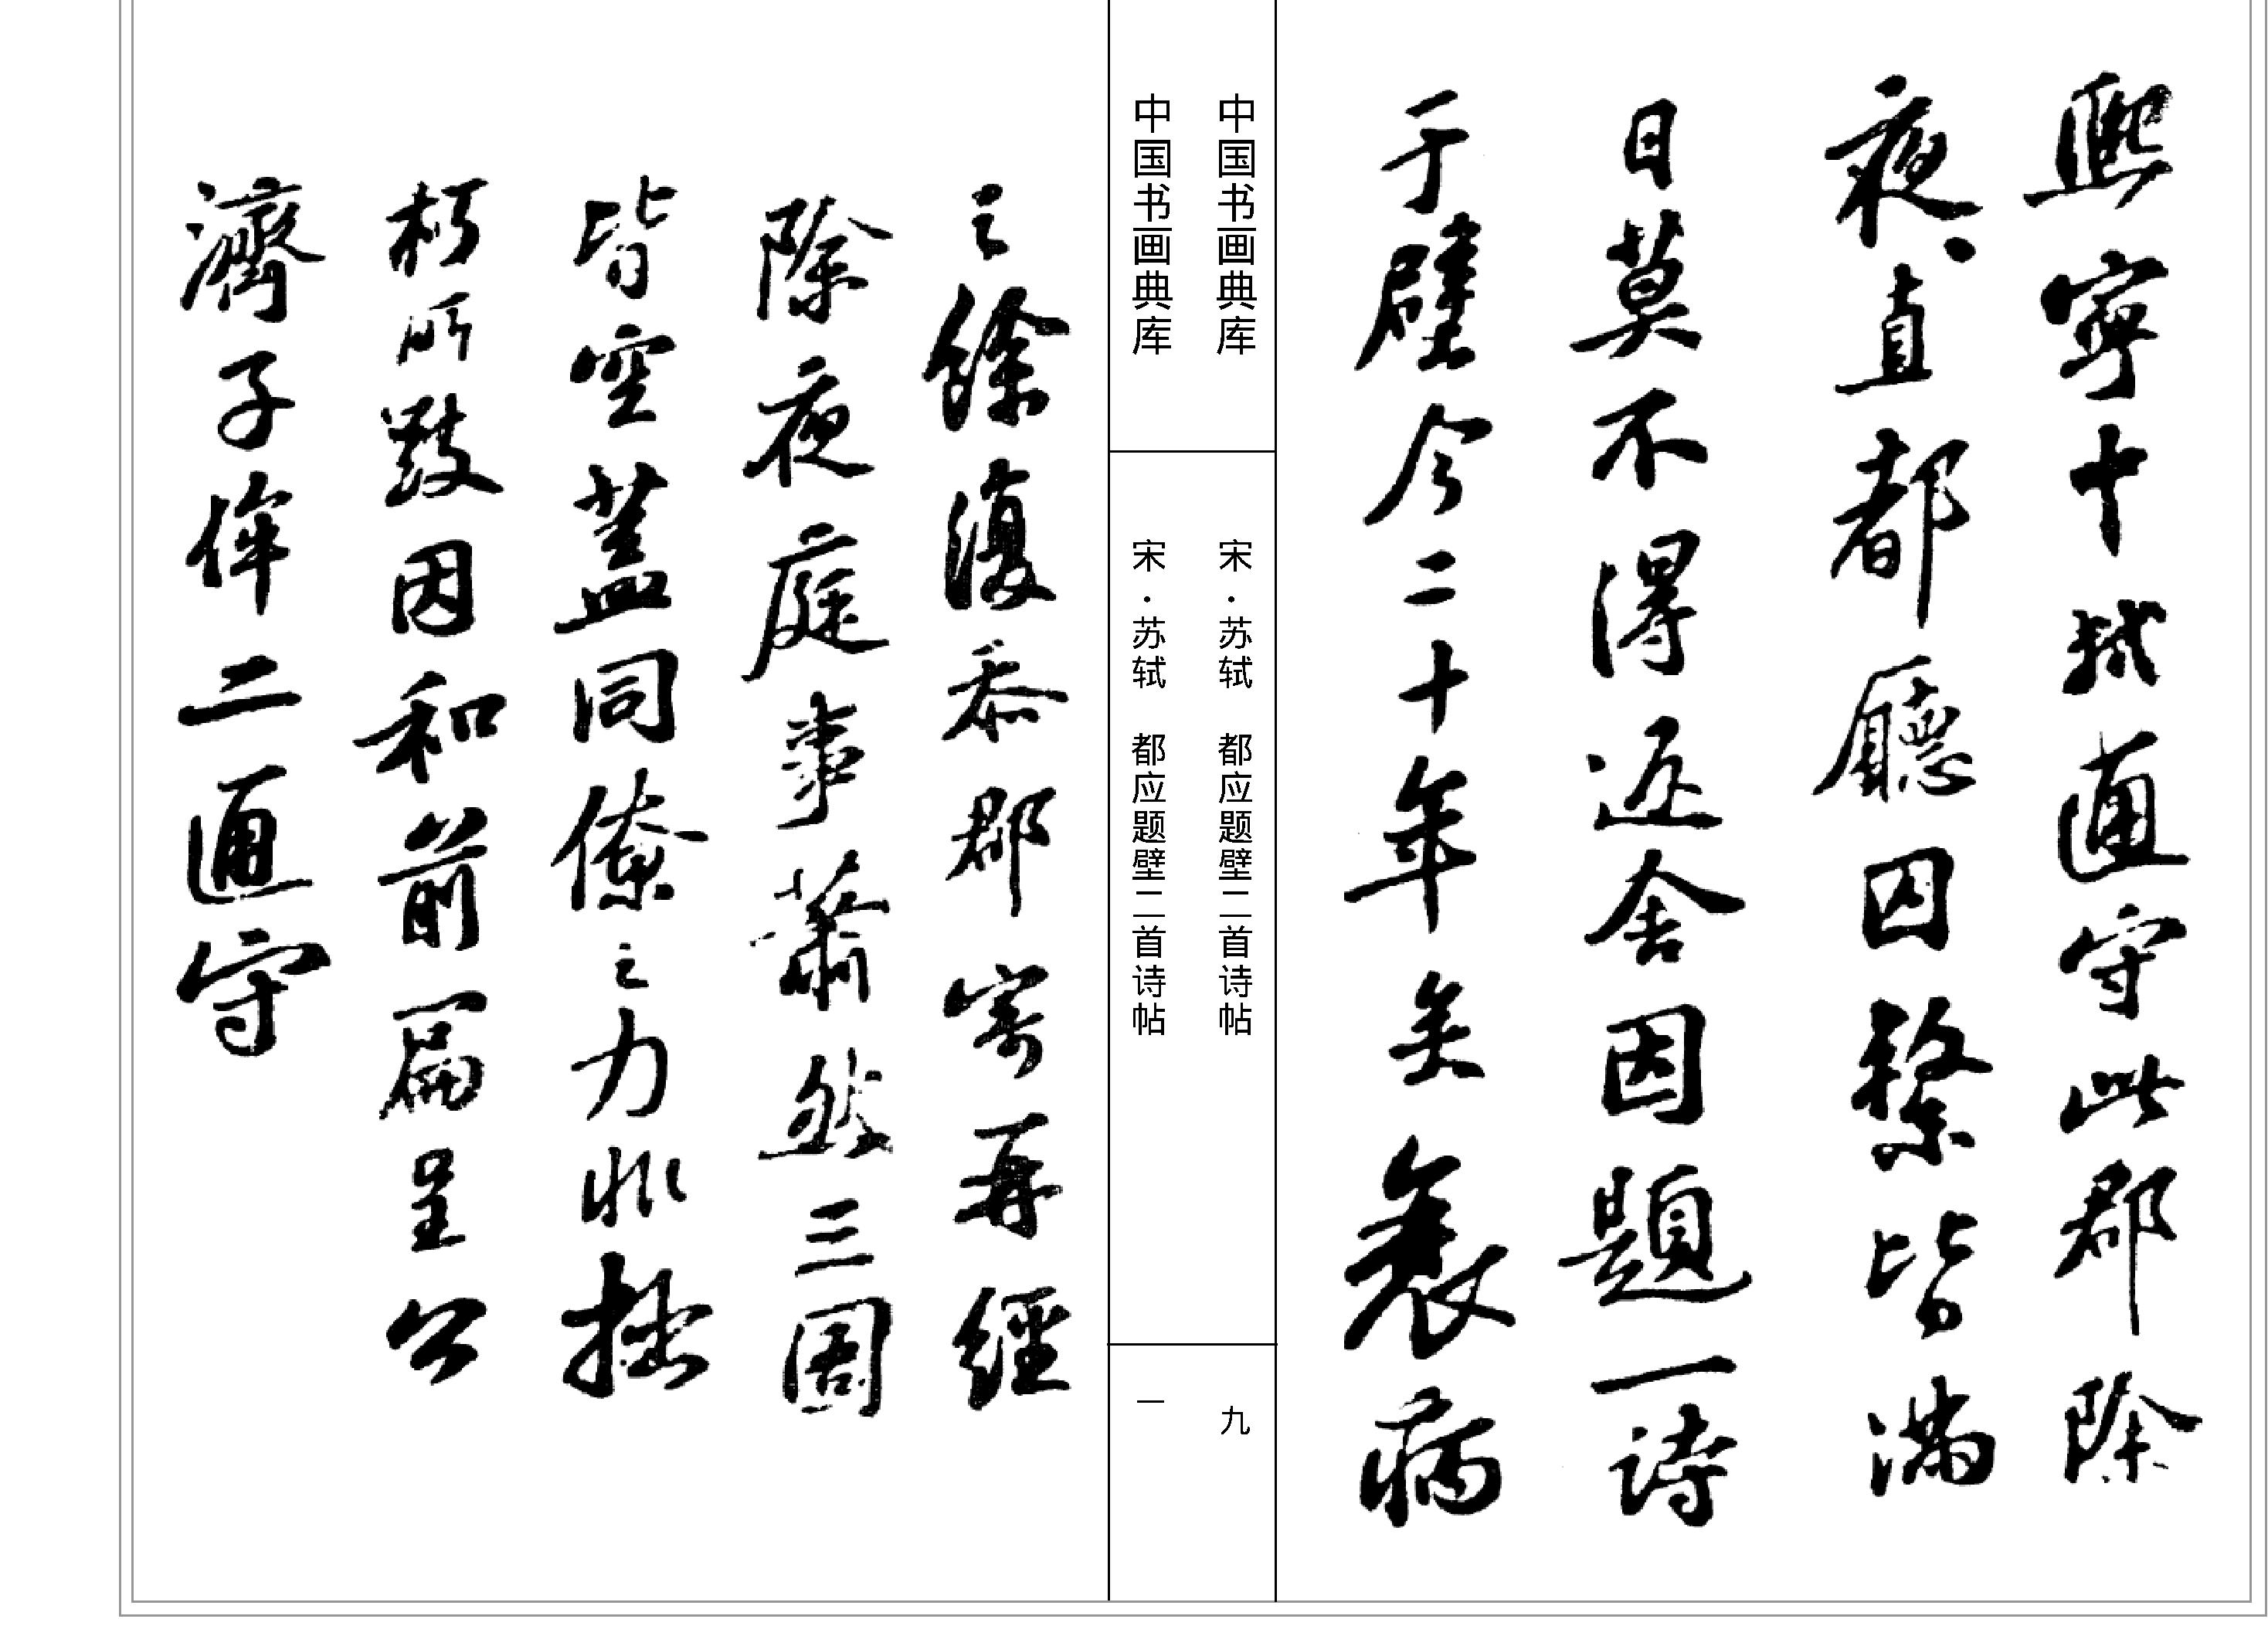 熙寧十軾通守此郡除
夜直都廳囚繫皆滿
日莫不得返舍因題一詩
于壁今二十年矣衰病
中国书画典库 宋·苏轼 都应题壁二首诗帖 九
中国书画典库 宋·苏轼 都应题壁二首诗帖 一
之餘復忝郡寄再經
除夜庭事蕭然三圄
皆空蓋同僚之力非拙
朽所致因和前篇呈公
濟子侔二通守